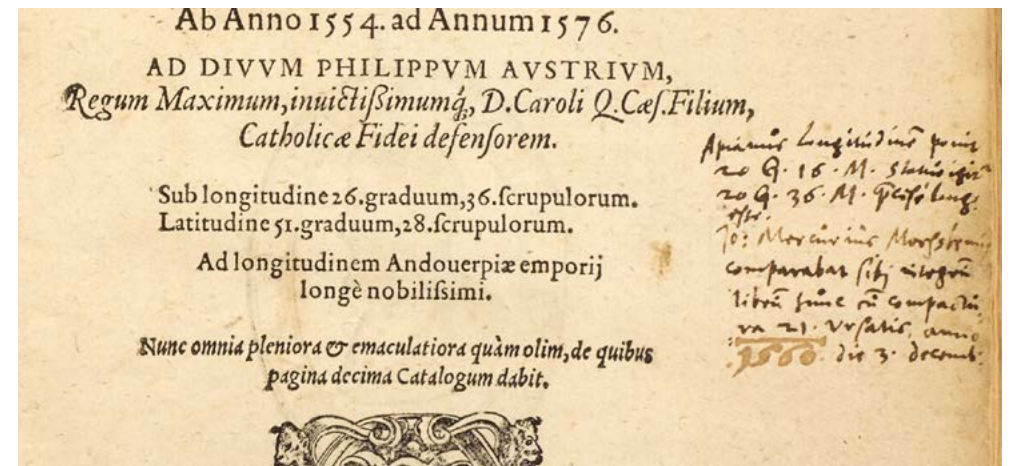 Ab Anno 1554. ad Annum 1576.
AD DIVVM PHILIPPVM AVSTRIVM,
Regum Maximum, inuictißimumq́, D. Caroli Q. Cæſ. Filium,
Catholicæ Fidei defenſorem.
Sub longitudine 26. graduum, 36. ſcrupulorum.
Latitudine 51. graduum, 28. ſcrupulorum.
Ad longitudinem Andouerpiæ emporij
longè nobiliſsimi.
Nunc omnia pleniora & emaculatiora quàm olim, de quibus
pagina decima Catalogum dabit.
Apianus Longitudinē ponit
20 G. 16. M.
20 G. 36. M.
Jo: Mercurius
comparabat sibj integrū
librū hunc cū compactu
ra 21. Vrsatis, anno
1560. die 3. decemb.